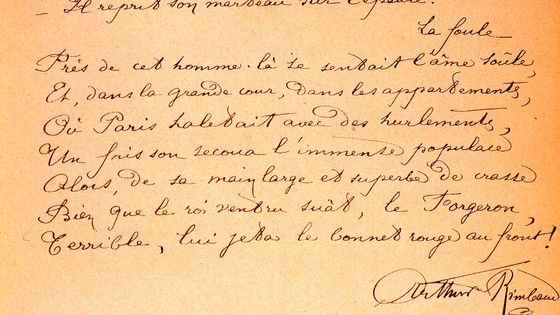 – Il reprit son marteau sur l'épaule.
La foule
Près de cet homme-là se sentait l'âme soûle,
Et, dans la grande cour, dans les appartements,
Où Paris haletait avec des hurlements,
Un frisson secoua l'immense populace
Alors, de sa main large et superbe de crasse
Bien que le roi ventru suât, le Forgeron,
Terrible, lui jeta le bonnet rouge au front!
Arthur Rimbaud